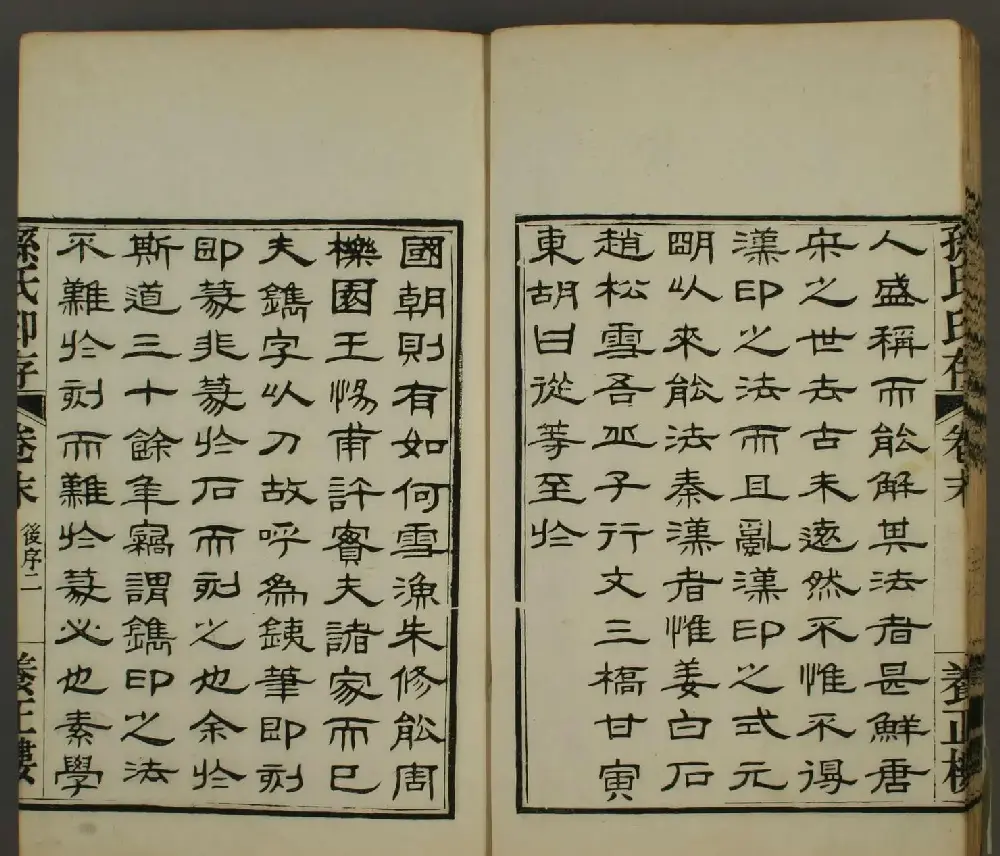 孫氏印存 卷末 養正樓
人盛稱而能解其法者甚鮮唐
宋之世去古未遠然不惟不得
漢印之法而且亂漢印之式元
明以來能法秦漢者惟姜白石
趙松雪吾丘子行文三橋甘寅
東胡曰從等至於
國朝則有如何雪漁朱修能周
櫟園王惕甫許賓夫諸家而已
夫鐫字以刀故呼為鐵筆即刻
即篆非篆於石而刻之也余於
斯道三十餘年竊謂鐫印之法
不難於刻而難於篆必也素學
孫氏印存 卷末 後序二 養正樓